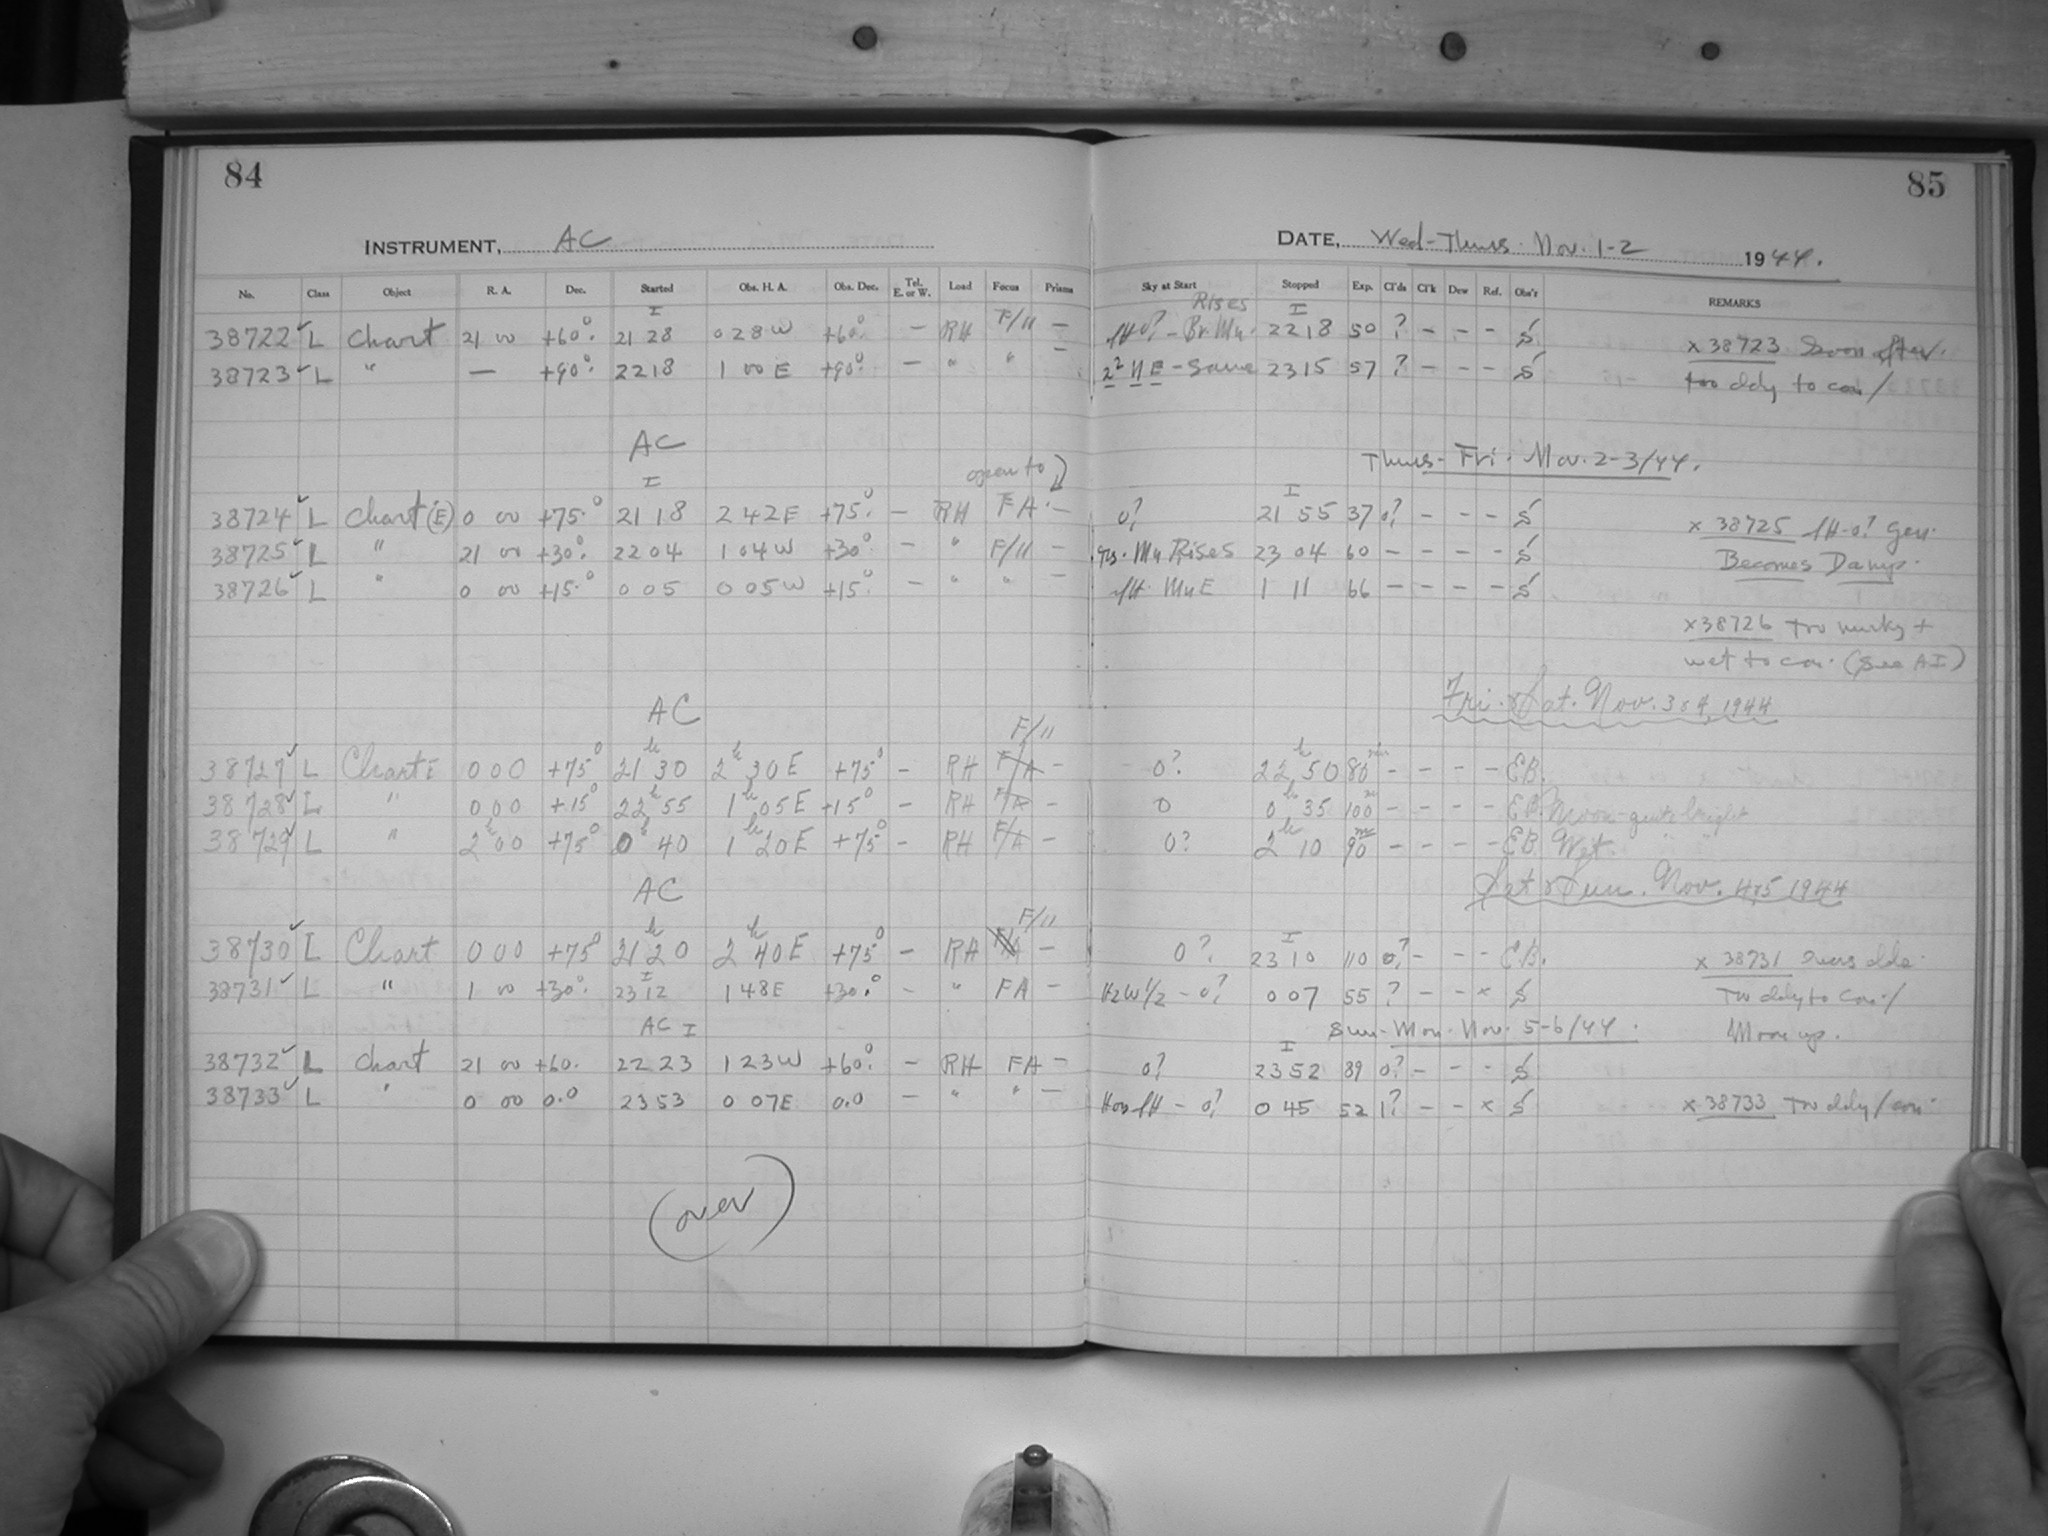 84
85
INSTRUMENT, AC
DATE, Wed-Thurs. Nov. 1-2 1944.
No. Class Object R. A. Dec. Started Obs. H. A. Obs. Dec. Tel. E. or W. Load Focus Prisms Sky at Start Stopped Exp. Cl'ds Cl'k Dew Ref. Obs'r REMARKS
I Rises I
38722 ✓ L Chart 21 00 +60.° 21 28 0 28 W +60.° — RH F/11 — 0? - Br. Mn. 22 18 50 ? — — — S x 38723 Soon after
38723 ✓ L " — +90.° 22 18 1 00 E +90.° — " " — 2² NE - Same 23 15 57 ? — — — S too cldy to con/
AC
Thurs-Fri. Nov. 2-3/44.
I open to I
38724 ✓ L Chart (E) 0 00 +75.° 21 18 2 42 E +75.° — RH FA — 0? 21 55 37 0? — — — S x 38725 0? Gen.
38725 ✓ L " 21 00 +30.° 22 04 1 04 W +30.° — " F/11 — Mn Rises 23 04 60 — — — — S Becomes Damp.
38726 ✓ L " 0 00 +15.° 0 05 0 05 W +15.° — " " — Mn E 1 11 66 — — — — S
x 38726 Too murky +
wet to con. (See AI)
AC
Fri. & Sat. Nov. 3 & 4, 1944
F/11
38727 ✓ L Chart E 0 00 +75° 21ʰ 30 2ʰ 30 E +75° — RH F/A — 0? 22ʰ 50 80ᵐ — — — — EB.
38728 ✓ L " 0 00 +15° 22ʰ 55 1ʰ 05 E +15° — RH F/A — 0 0ʰ 35 100ᵐ — — — — EB. Moon-quite bright
38729 ✓ L " 2ʰ 00 +75° 0ʰ 40 1ʰ 20 E +75° — RH F/A — 0? 2ʰ 10 90ᵐ — — — — EB Wet. " "
AC
Sat & Sun. Nov. 4 & 5 1944
F/11
38730 ✓ L Chart 0 00 +75° 21ʰ 20 2ʰ 40 E +75° — RH — 0? 23 10 110 0? — — — E.B. x 38731
38731 ✓ L " 1 00 +30.° 23 12 1 48 E +30.° — " FA — HzW 1/2 - 0? 0 07 55 ? — — x S Too cldy to con/
AC I
Sun-Mon. Nov. 5-6/44. Moon up.
38732 ✓ L Chart 21 00 +60. 22 23 1 23 W +60.° — RH FA — 0? 23 52 89 0? — — — S
38733 ✓ L " 0 00 0.0 23 53 0 07 E 0.0 — " " — 0? 0 45 52 1? — — x S x 38733 Too cldy/con
(over)